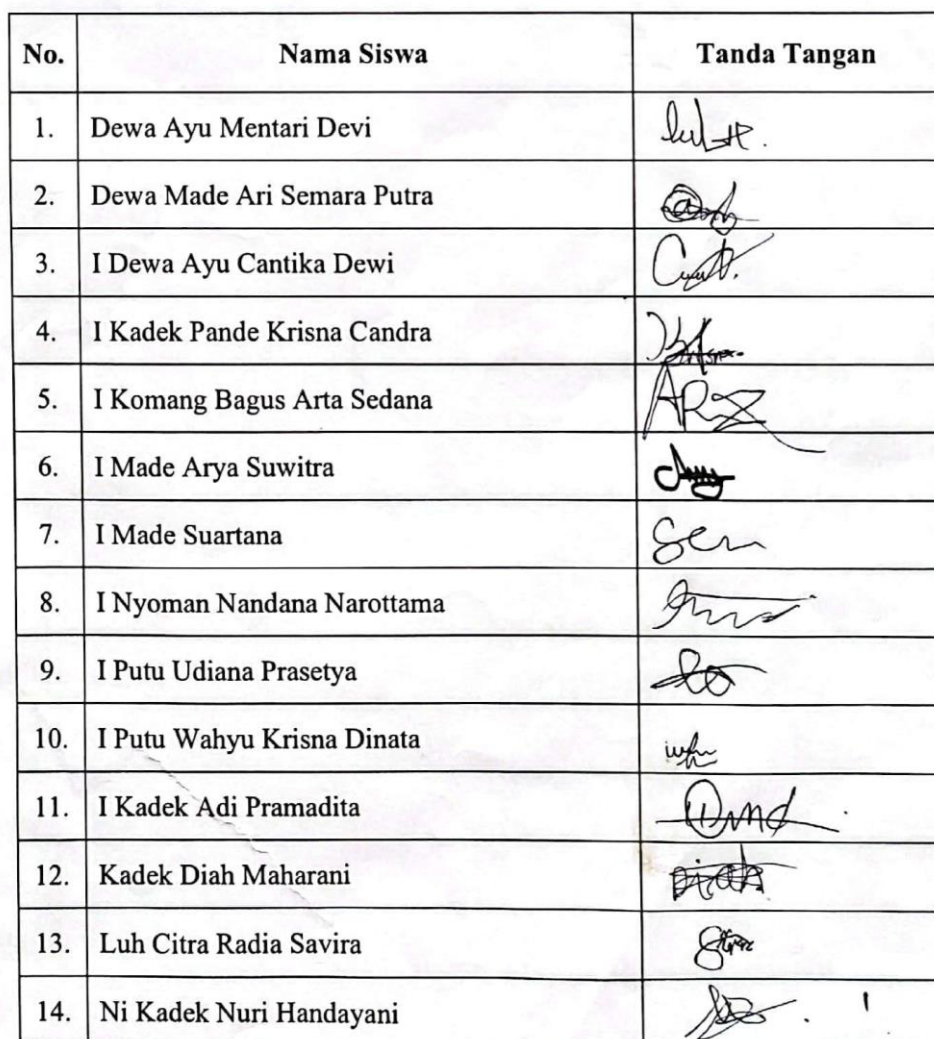 No. Nama Siswa Tanda Tangan
1. Dewa Ayu Mentari Devi
2. Dewa Made Ari Semara Putra
3. I Dewa Ayu Cantika Dewi
4. I Kadek Pande Krisna Candra
5. I Komang Bagus Arta Sedana
6. I Made Arya Suwitra
7. I Made Suartana
8. I Nyoman Nandana Narottama
9. I Putu Udiana Prasetya
10. I Putu Wahyu Krisna Dinata
11. I Kadek Adi Pramadita
12. Kadek Diah Maharani
13. Luh Citra Radia Savira
14. Ni Kadek Nuri Handayani